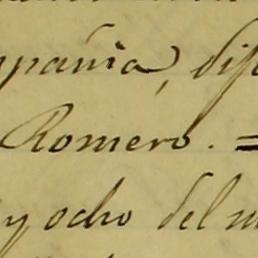 mpañia, dis
Romero. =
y ocho del m